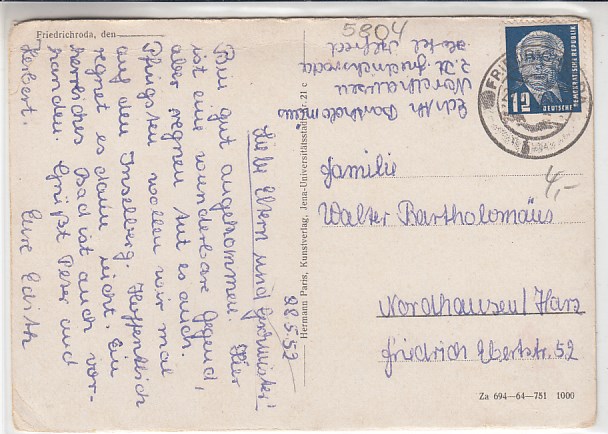 Friedrichroda, den
28.5.52
Liebe Eltern und Geschwister!
Bin gut angekommen. Hier
ist eine wunderbare Gegend,
aber regnen tut es auch.
Pfingsten wollen wir mal
auf den Inselberg. Hoffentlich
regnet es dann nicht. Ein
herrliches Bad ist auch vor-
handen. Grüßt Peter und
Herbert.
Eure Edith
5804
Edith Bartholomäus
Nordhausen
z. Zt. Friedrichroda
Hotel
12
DEUTSCHE
DEMOKRATISCHE REPUBLIK
Familie
Walter Bartholomäus
Nordhausen/Harz
Friedrich Ebertstr. 52
4,-
Hermann Paris, Kunstverlag, Jena-Universitätsstadt
str. 21 c
Za 694—64—751 1000